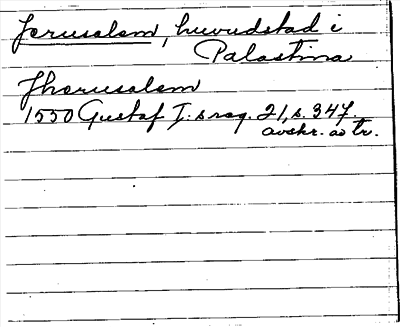 Jerusalem, huvudstad i
Palastina
Jherusalem
1550 Gustaf I:s reg. 21, s. 347.
avskr. av tr.